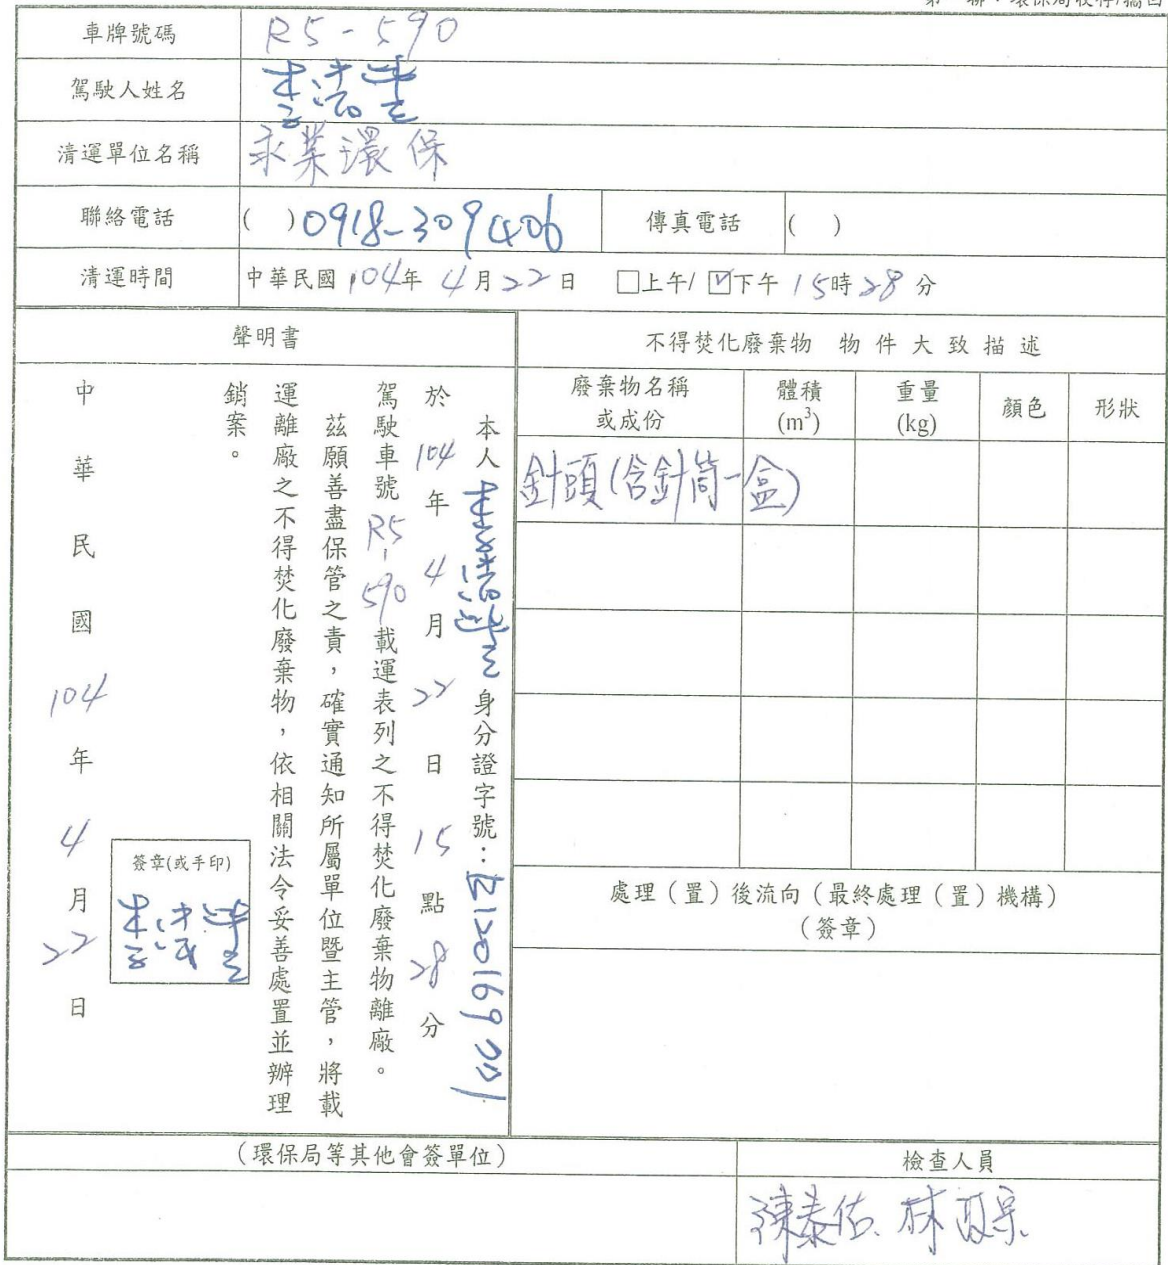 車牌號碼 R5-590
駕駛人姓名
清運單位名稱 永業環保
聯絡電話 ( )0918-309406 傳真電話 ( )
清運時間 中華民國104年4月22日 □上午/☑下午15時28分
聲明書
本人 身分證字號:
於104年4月22日15點28分
駕駛車號R5-590載運表列之不得焚化廢棄物離廠。
茲願善盡保管之責,確實通知所屬單位暨主管,將載
運離廠之不得焚化廢棄物,依相關法令妥善處置並辦理
銷案。
簽章(或手印)
中華民國104年4月22日
不得焚化廢棄物 物件大致描述
廢棄物名稱或成份 體積(m³) 重量(kg) 顏色 形狀
針頭(含針筒一盒)
處理(置)後流向(最終處理(置)機構)
(簽章)
(環保局等其他會簽單位) 檢查人員
陳泰佑、林